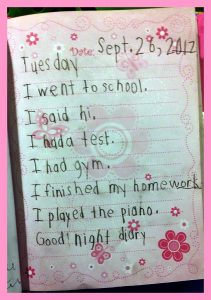 Date: Sept. 26, 2012
Tuesday
I went to school.
I said hi.
I had a test.
I had gym.
I finished my homework
I played the piano.
Good night diary